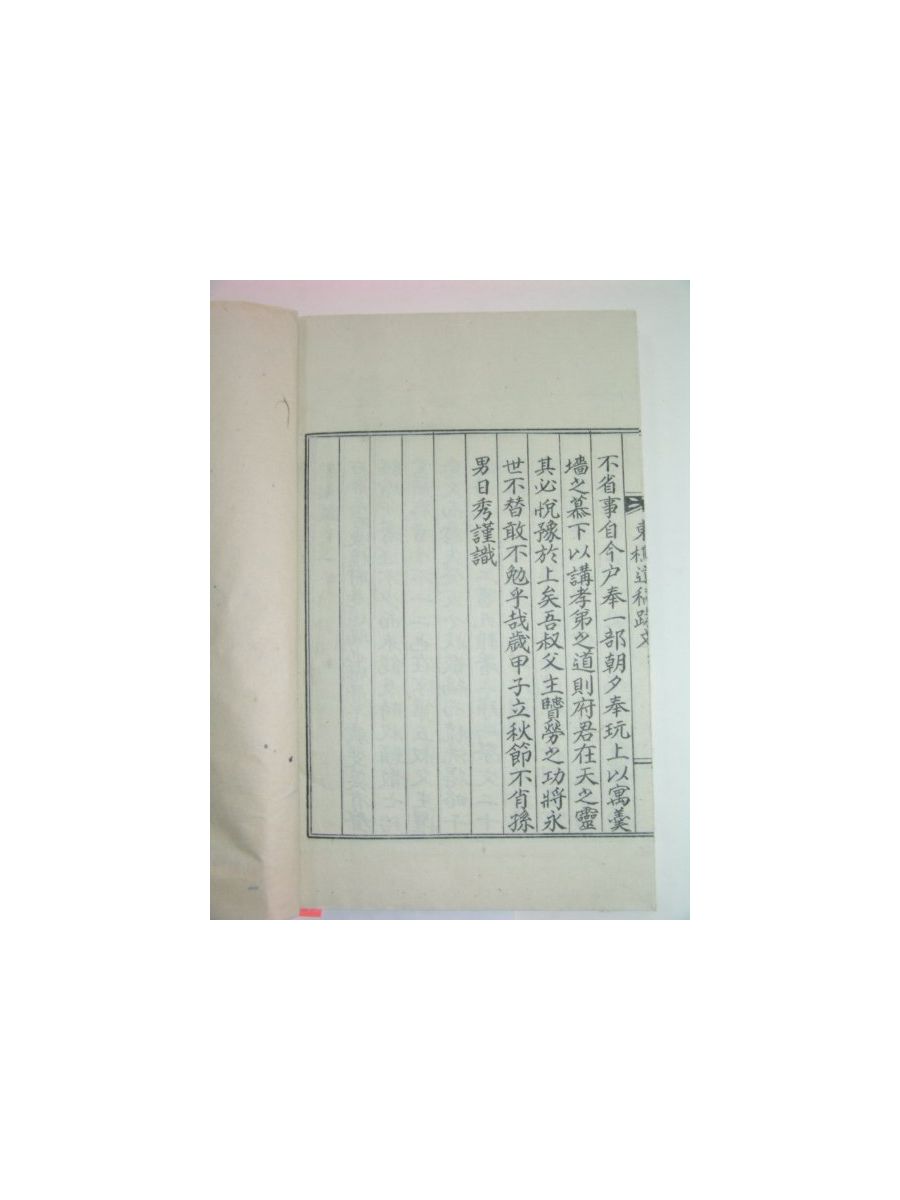 東樵遺稿跋文
不省事自今户奉一部朝夕奉玩上以寓羹
墻之慕下以講孝弟之道則府君在天之靈
其必悅豫於上矣吾叔父主賢勞之功將永
世不替敢不勉乎哉歲甲子立秋節不肖孫
男日秀謹識